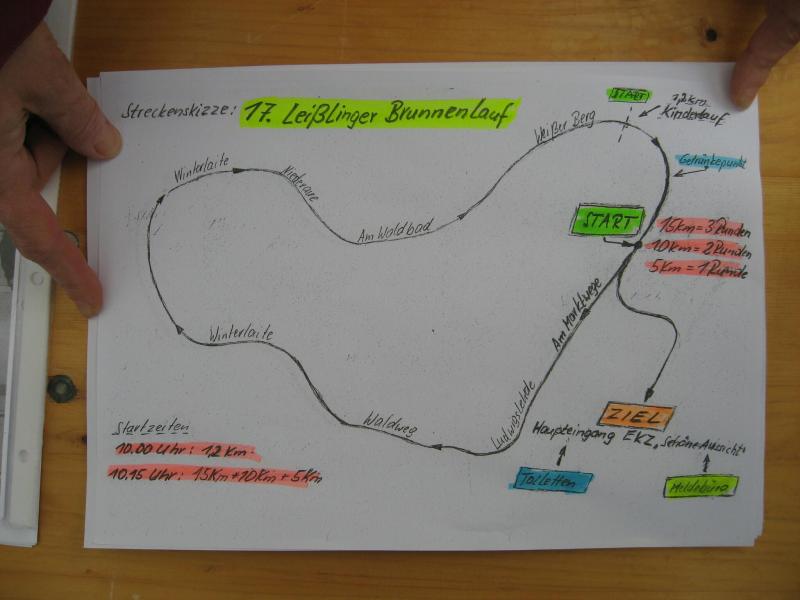 Streckenskizze: 17. Leißlinger Brunnenlauf
START
1,2 km
Kinderlauf
Weißer Berg
Getränkepunkt
Winterlaite
Niederaue
Am Waldbad
START
15km = 3 Runden
10km = 2 Runden
5km = 1 Runde
Am Marktwege
Winterlaite
Waldweg
Ludwigslehde
ZIEL
Haupteingang EKZ „Schöne Aussicht"
Toiletten
Meldebüro
Startzeiten
10.00 Uhr: 1,2 km
10.15 Uhr: 15km + 10km + 5km